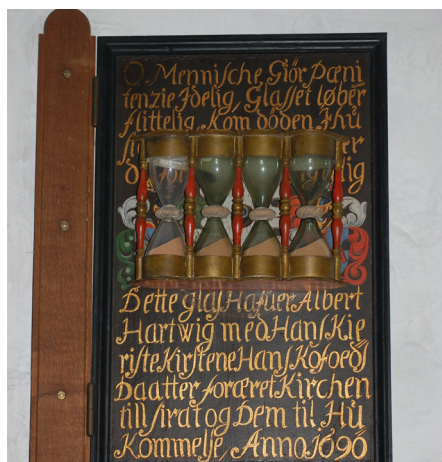 O Mennische Giör Pæni
tenzie Idelig, Glasset løber
flittelig, Kom döden Ihu
Dette glas Hafuer Albert
Hartwig med Hans Kie
riste Kirstene Hans Kofoeds
Daatter foræret Kirchen
till Sirat og Dem til Hu
Kommelse, Anno 1696